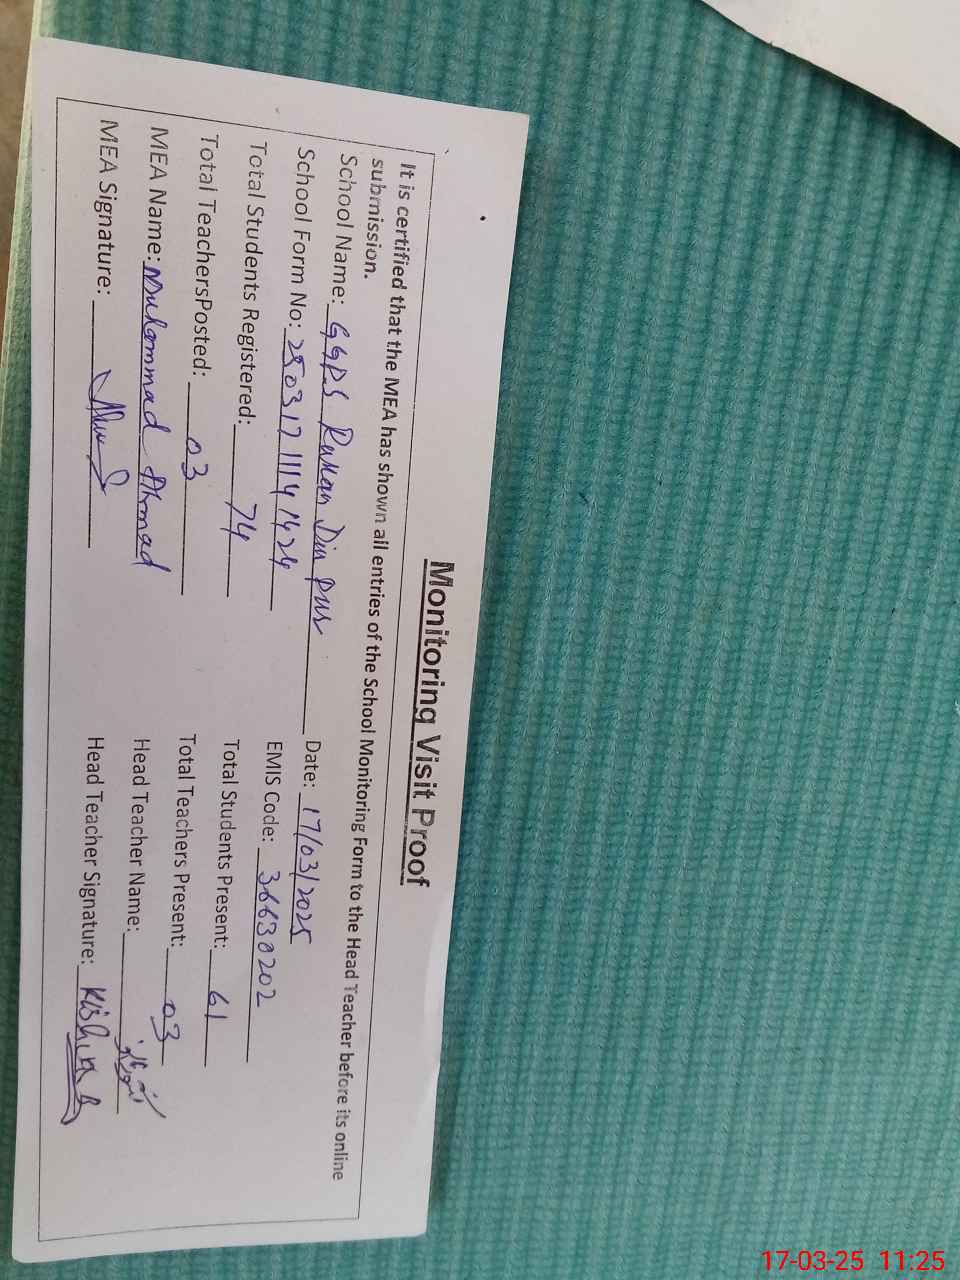 Monitoring Visit Proof
It is certified that the MEA has shown all entries of the School Monitoring Form to the Head Teacher before its online
submission.
School Name: GGPS Rukan Din pur Date: 17/03/2025
School Form No: 250317 1114 1424 EMIS Code: 36630202
Total Students Registered: 74 Total Students Present: 61
Total TeachersPosted: 03 Total Teachers Present: 03
MEA Name: Muhammad Ahmad Head Teacher Name:
MEA Signature: Head Teacher Signature:
17-03-25 11:25